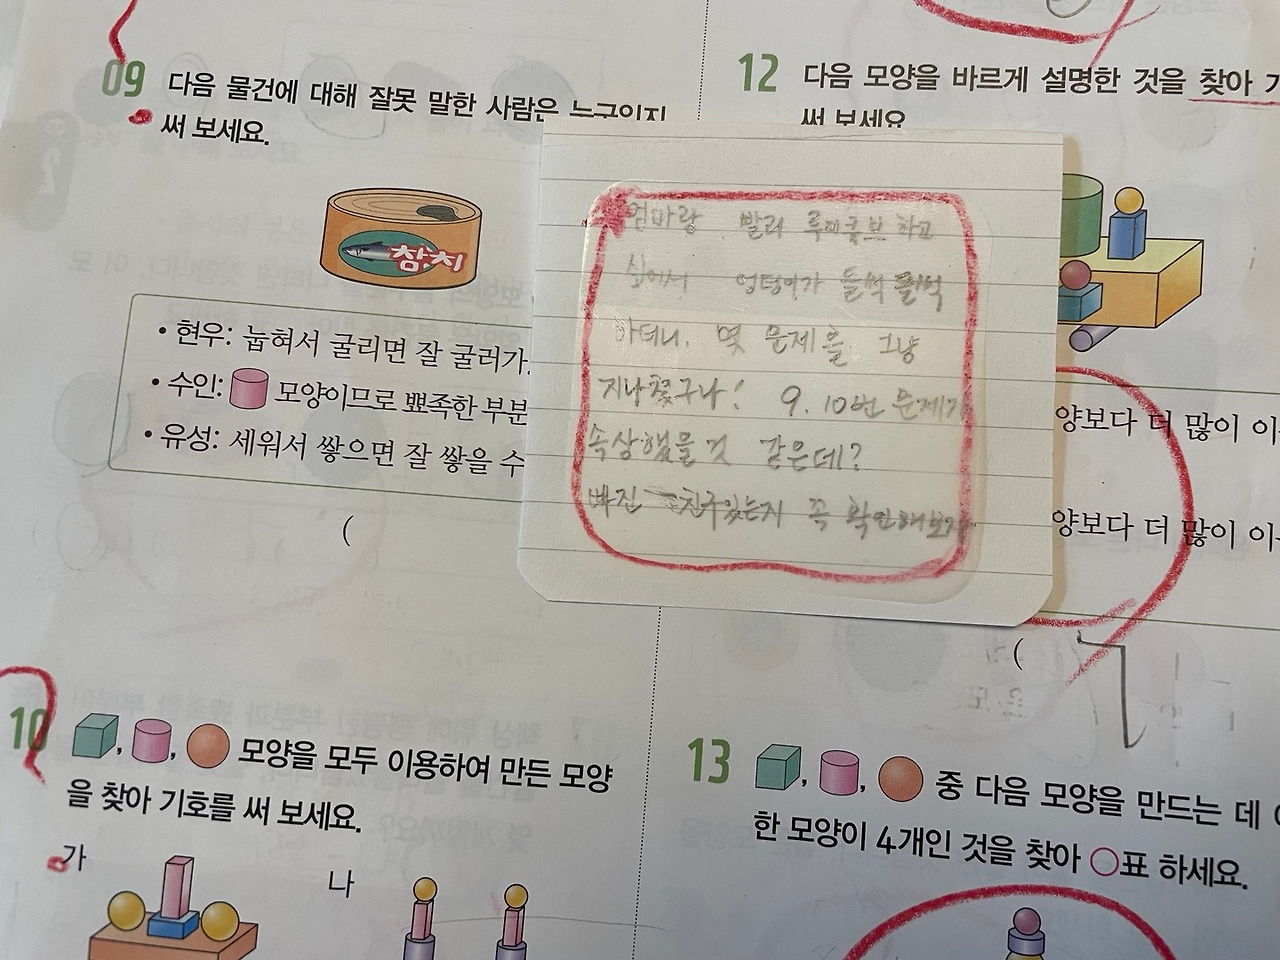 09 다음 물건에 대해 잘못 말한 사람은 누구인지
써 보세요.
참치
• 현우: 눕혀서 굴리면 잘 굴러가
• 수인: 모양이므로 뾰족한 부분
• 유성: 세워서 쌓으면 잘 쌓을 수
(
10 , , 모양을 모두 이용하여 만든 모양
을 찾아 기호를 써 보세요.
가 나
엄마랑 빨리 루미큐브 하고
싶어서 엉덩이가 들썩 들썩
하더니, 몇 문제를 그냥
지나쳤구나! 9. 10번 문제가
속상했을것 같은데?
빠진 친구있는지 꼭 확인해보자
12 다음 모양을 바르게 설명한 것을 찾아 기
써 보세요
양보다 더 많이 이
양보다 더 많이 이
(
13 , , 중 다음 모양을 만드는 데
한 모양이 4개인 것을 찾아 ○표 하세요.